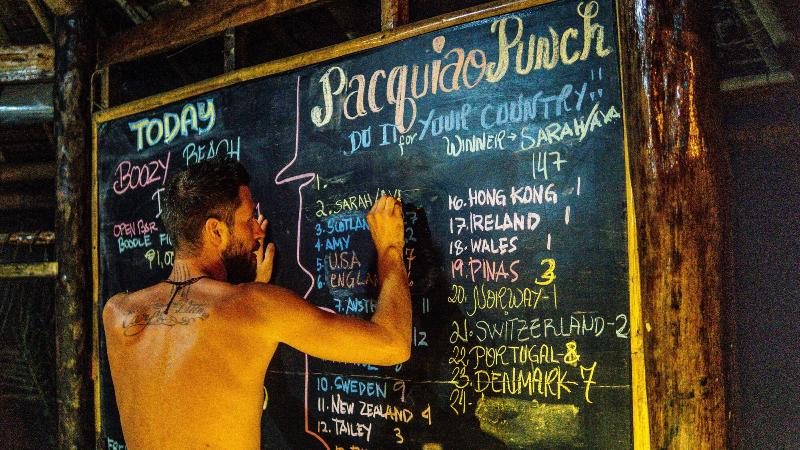 TODAY
BOOZY BEACH
OPEN BAR
BOODLE
Pacquiao Punch
DO IT for YOUR COUNTRY!!
WINNER → SARAH/AVA
147
1.
2. SARAH/AVA
3. SCOTLAN
4. AMY
5. U.S.A
6. ENGLAN
7. AUST 11
10. SWEDEN 9
11. NEW ZEALAND 4
12. TAILEY 3
16. HONG KONG 1
17. IRELAND 1
18. WALES 1
19. PINAS 3
20. NORWAY-1
21. SWITZERLAND-2
22. PORTUGAL-8
23. DENMARK-7
24-